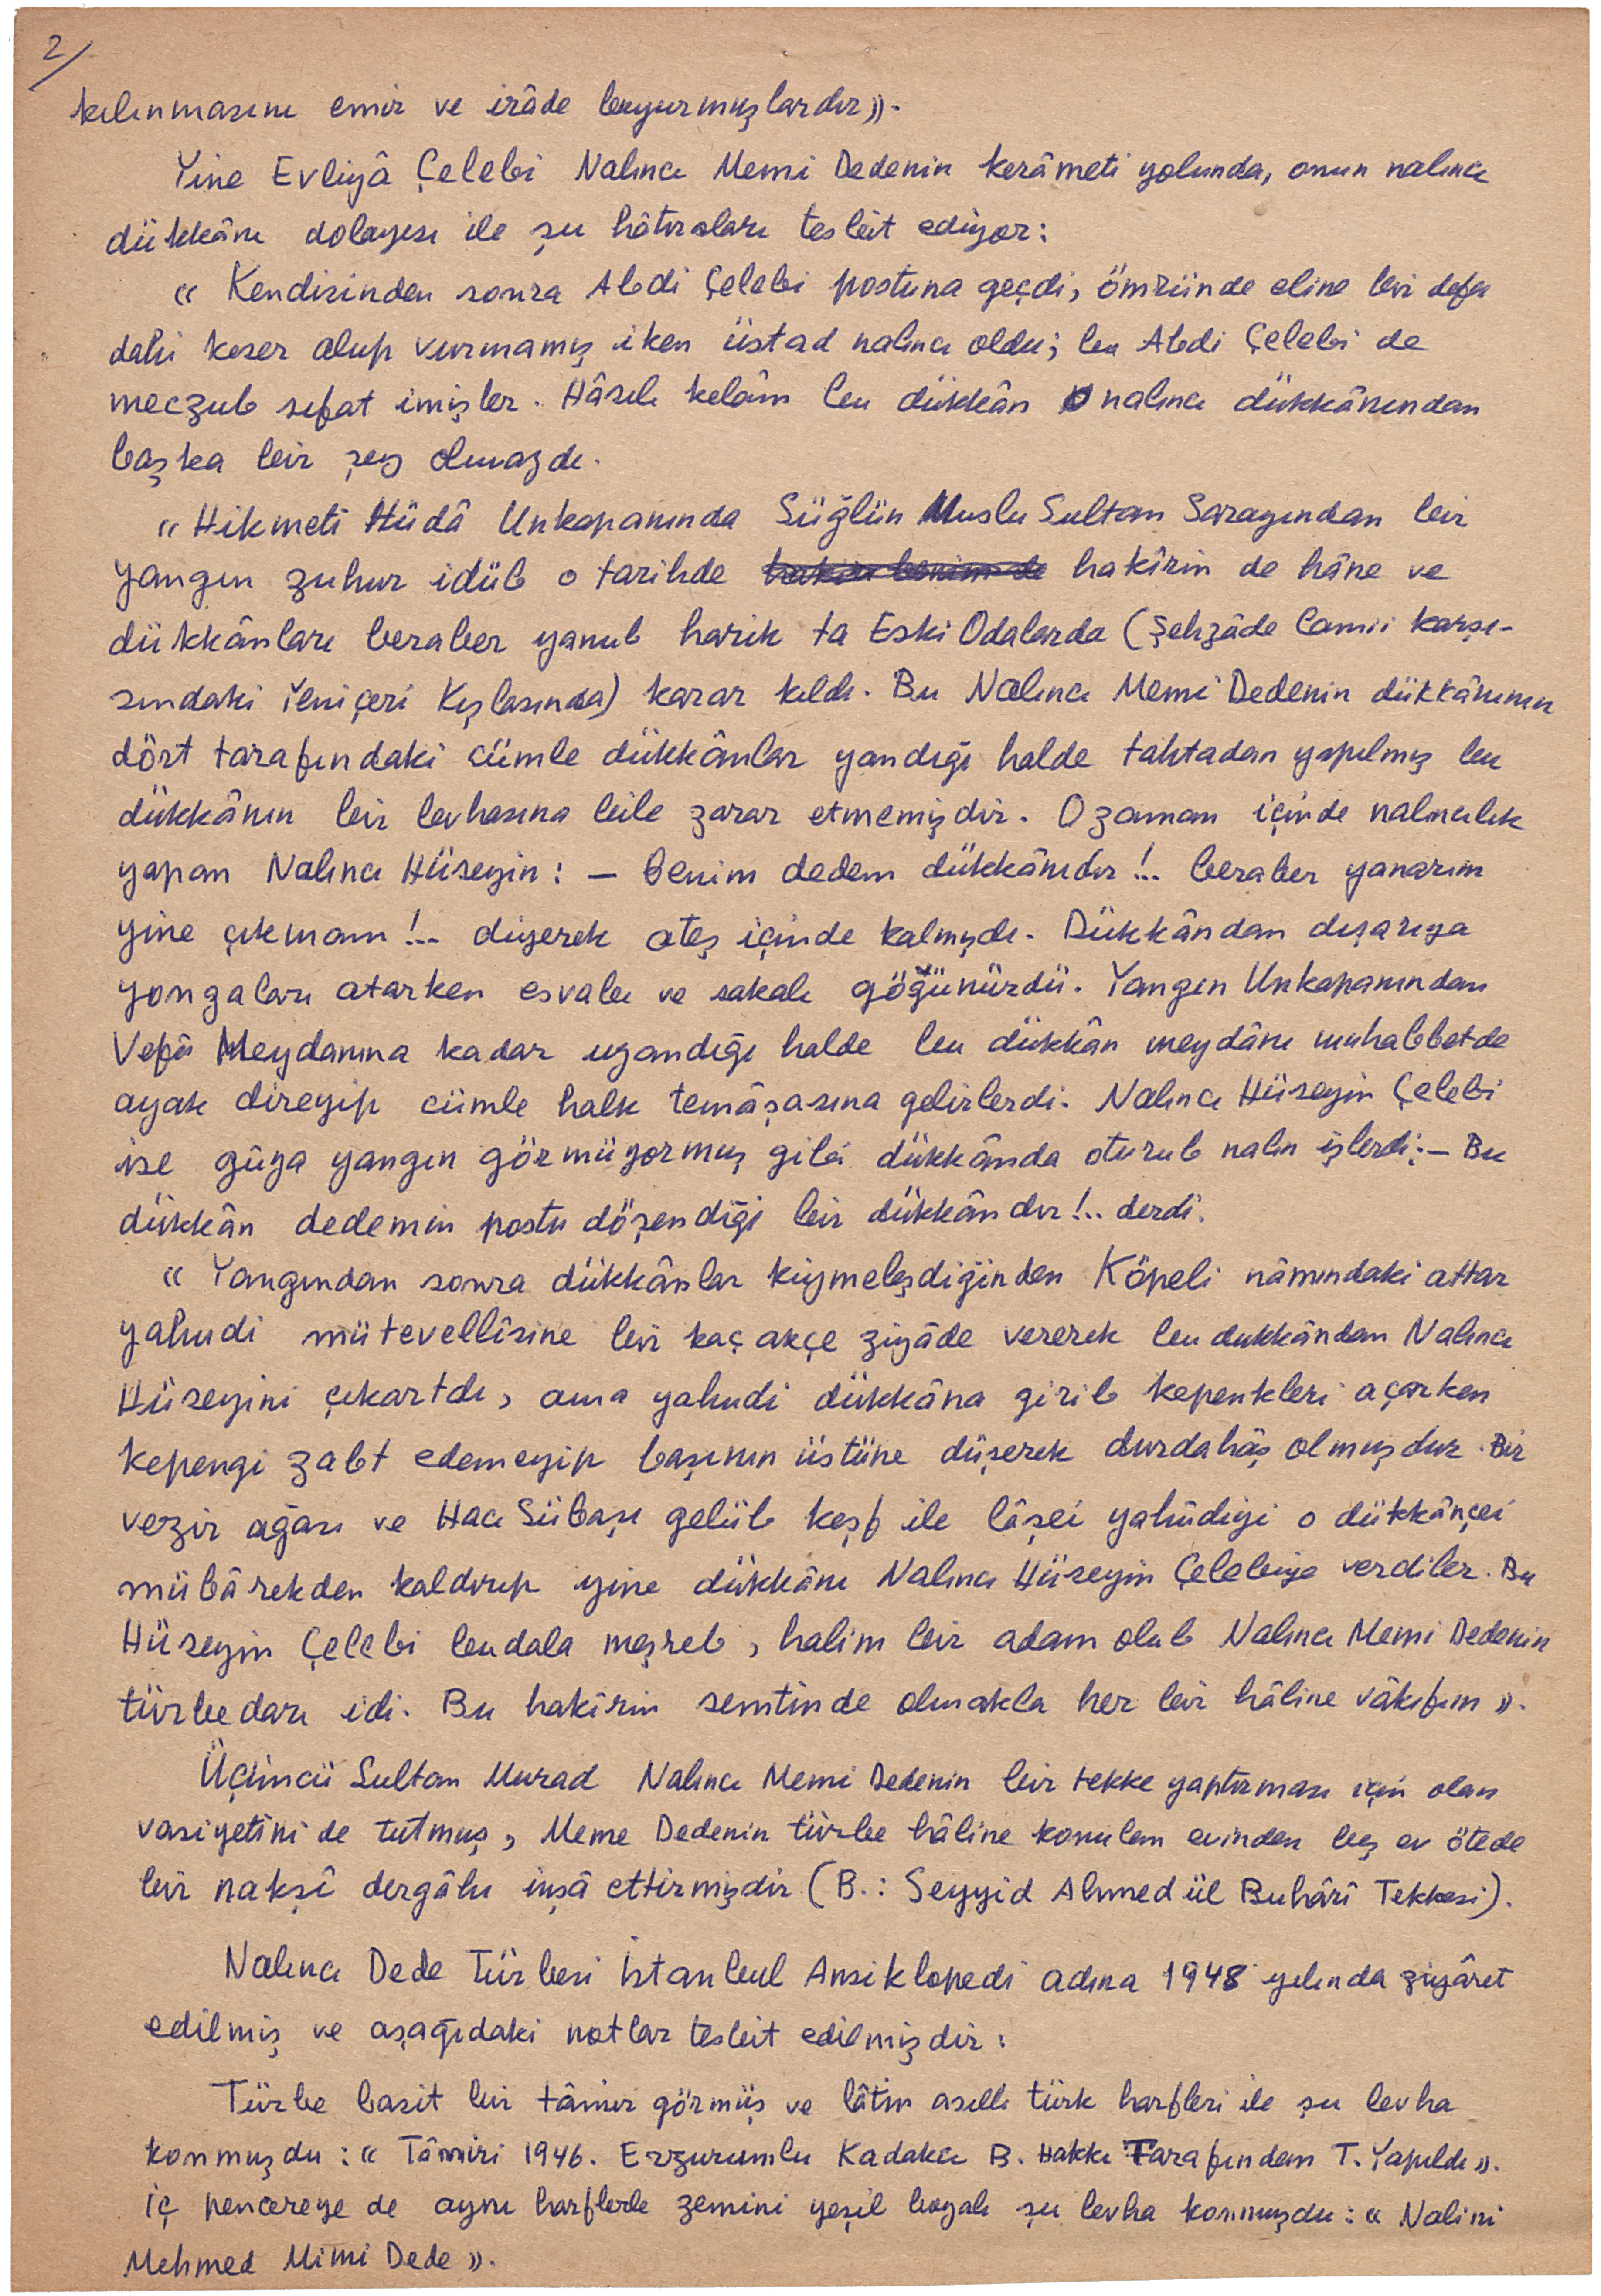 2/
kılınmasını emir ve irâde buyurmuşlardır».
Yine Evliyâ Çelebi Nalıncı Memi Dedenin kerâmeti yolunda, onun nalıncı
dükkânı dolayısı ile şu hâtıraları tesbit ediyor:
« Kendisinden sonra Abdi Çelebi postuna geçdi, ömründe eline bir defa
dahi keser alup vurmamış iken üstad nalıncı oldu; bu Abdi Çelebi de
meczub sıfat imişler. Hâsılı kelâm bu dükkân nalıncı dükkânından
başka bir şey olmazdı.
« Hikmeti Hüdâ Unkapanında Süğlün Muslu Sultan Sarayından bir
yangın zuhur idüb o tarihde hakîrin de hâne ve
dükkânları beraber yanub harik ta Eski Odalarda (Şehzâde Camii karşı-
sındaki Yeniçeri Kışlasında) karar kıldı. Bu Nalıncı Memi Dedenin dükkânının
dört tarafındaki cümle dükkânlar yandığı halde tahtadan yapılmış bu
dükkânın bir levhasına bile zarar etmemişdir. O zaman içinde nalıncılık
yapan Nalıncı Hüseyin: — Benim dedem dükkânıdır!.. beraber yanarım
yine çıkmam!.. diyerek ateş içinde kalmışdı. Dükkândan dışarıya
yongaları atarken esvabı ve sakalı göğünürdü. Yangın Unkapanından
Vefâ Meydanına kadar uzandığı halde bu dükkân meydânı muhabbetde
ayak direyip cümle halk temâşasına gelirlerdi. Nalıncı Hüseyin Çelebi
ise gûya yangın görmüyormuş gibi dükkânda oturub nalın işlerdi; — Bu
dükkân dedemin postu döşendiği bir dükkândır!.. derdi.
« Yangından sonra dükkânlar kıymeleşdiğinden Köpeli nâmındaki attar
yahudi mütevellîsine bir kaç akçe ziyâde vererek bu dukkândan Nalıncı
Hüseyini çıkartdı, ama yahudi dükkâna girib kepenkleri açarken
kepengi zabt edemeyip başının üstüne düşerek durdahâş olmuşdur. Bir
vezir ağası ve Hacı Sübaşı gelüb keşf ile lâşei yahûdiyi o dükkânçei
mübârekden kaldırıp yine dükkânı Nalıncı Hüseyin Çelebiye verdiler. Bu
Hüseyin Çelebi budala meşreb, halim bir adam olub Nalıncı Memi Dedenin
türbedarı idi. Bu hakîrin semtinde olmakla her bir hâline vâkıfım ».
Üçüncü Sultan Murad Nalıncı Memi Dedenin bir tekke yaptırması için olan
vasiyetini de tutmuş, Meme Dedenin türbe hâline konulan evinden beş ev ötede
bir nakşî dergâhı inşâ ettirmişdir (B.: Seyyid Ahmed ül Buhârî Tekkesi).
Nalıncı Dede Türbesi İstanbul Ansiklopedi adına 1948 yılında ziyâret
edilmiş ve aşağıdaki notlar tesbit edilmişdir:
Türbe basit bir tâmir görmüş ve lâtin asıllı türk harfleri ile şu levha
konmuşdu: « Tâmiri 1946. Erzurumlu Kadakcı B. Hakkı Tarafından T. Yapıldı ».
İç pencereye de aynı harflerle zemini yeşil boyalı şu levha konmuşdu: « Nalini
Mehmed Mimi Dede ».